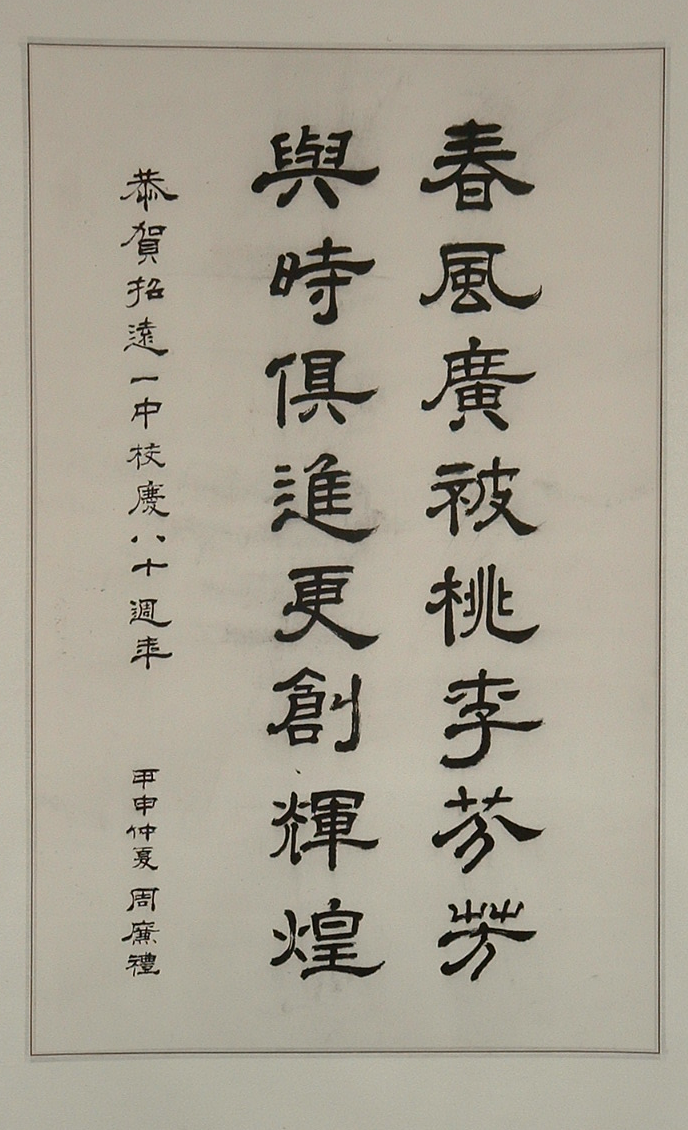 春風廣被桃李芬芳
與時俱進更創輝煌
恭賀招遠一中校慶八十週年
甲申仲夏 周廉禮